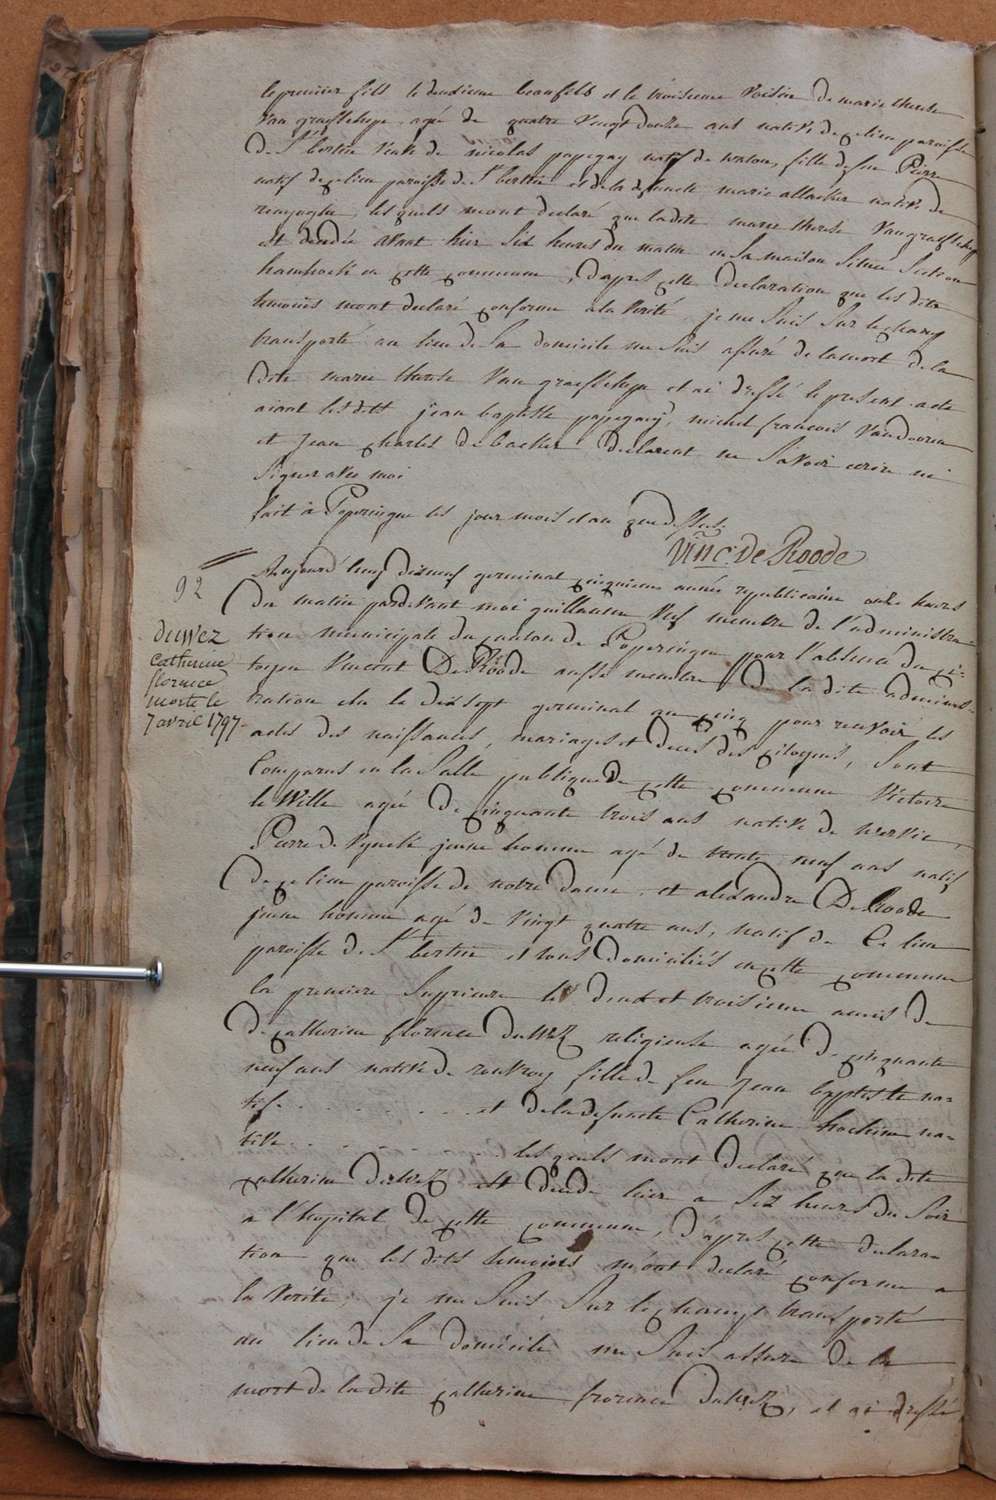 le premier fils le deuxieme beaufils et le troisieme voisin de marie therese
van graefschepe agé de quatre vingt douze ans native de ce lieu paroisse
de St bertin veuve de nicolas papegay natif de watou, fille de feu Pierre
natif de ce lieu paroisse de St bertin et de la defuncte marie native de
les quels m'ont declaré que la dite marie therese van graefschepe
est dendée avant hier six heures du matin en sa maison située section
hamhoek en cette commune, d'apres cette declaration que les dits
temoins m'ont declaré conforme a la verité je me suis sur le champ
transporté au lieu de sa domicile me suis assuré de la mort de la
dite marie therese van graefschepe et ai dressé le present acte
aiant les dits jean baptiste papegay, michel francois vandooren
et Jean charles de backer declarent ne savoir ecrire ni
signer avec moi
fait à Poperingue les jour mois et an que dessus.
Vinc. De Roode
92
duwez
Catherine
florence
morte le
7 avril 1797
Aujourd'huy dixneuf germinal cinquieme année republicaine onze heures
du matin pardevant moi guillaume membre de l'administra-
tion municipale du canton de Poperingue pour l'absence du ci-
toyen Vincent DeRoode aussi membre de la dite adminis-
tration elu le dixsept germinal an cinq pour recevoir les
actes des naissances, mariages et decès des citoyens, sont
Comparus en la salle publique de cette commune Victoire
le Wille agée de cinquante trois ans native de wervic,
Pierre de jeune homme agé de trente neuf ans natif
de ce lieu paroisse de notre dame, et alexandre DeRoode
jeune homme agé de vingt quatre ans, natif de Ce lieu
paroisse de St bertin et tous domiciliés en cette commune
la premiere superieure les deux et troisieme amis de
de catherine florence duwez religieuse agée de cinquante
neuf ans native de rouvroy fille de feu Jean baptiste na-
tif . . . . . . . . . et de la defuncte Catherine na-
tive . . . . . . . . . les quels m'ont declaré que la dite
catherine duwez est dendé hier a six heures du soir
a l'hopital de cette commune, d'apres cette declara-
tion que les dits temoins m'ont declaré conforme a
la verité, je me suis sur le champ transporté
au lieu de sa domicile me suis assuré de la
mort de la dite catherine frorence duwez, et ai dressé